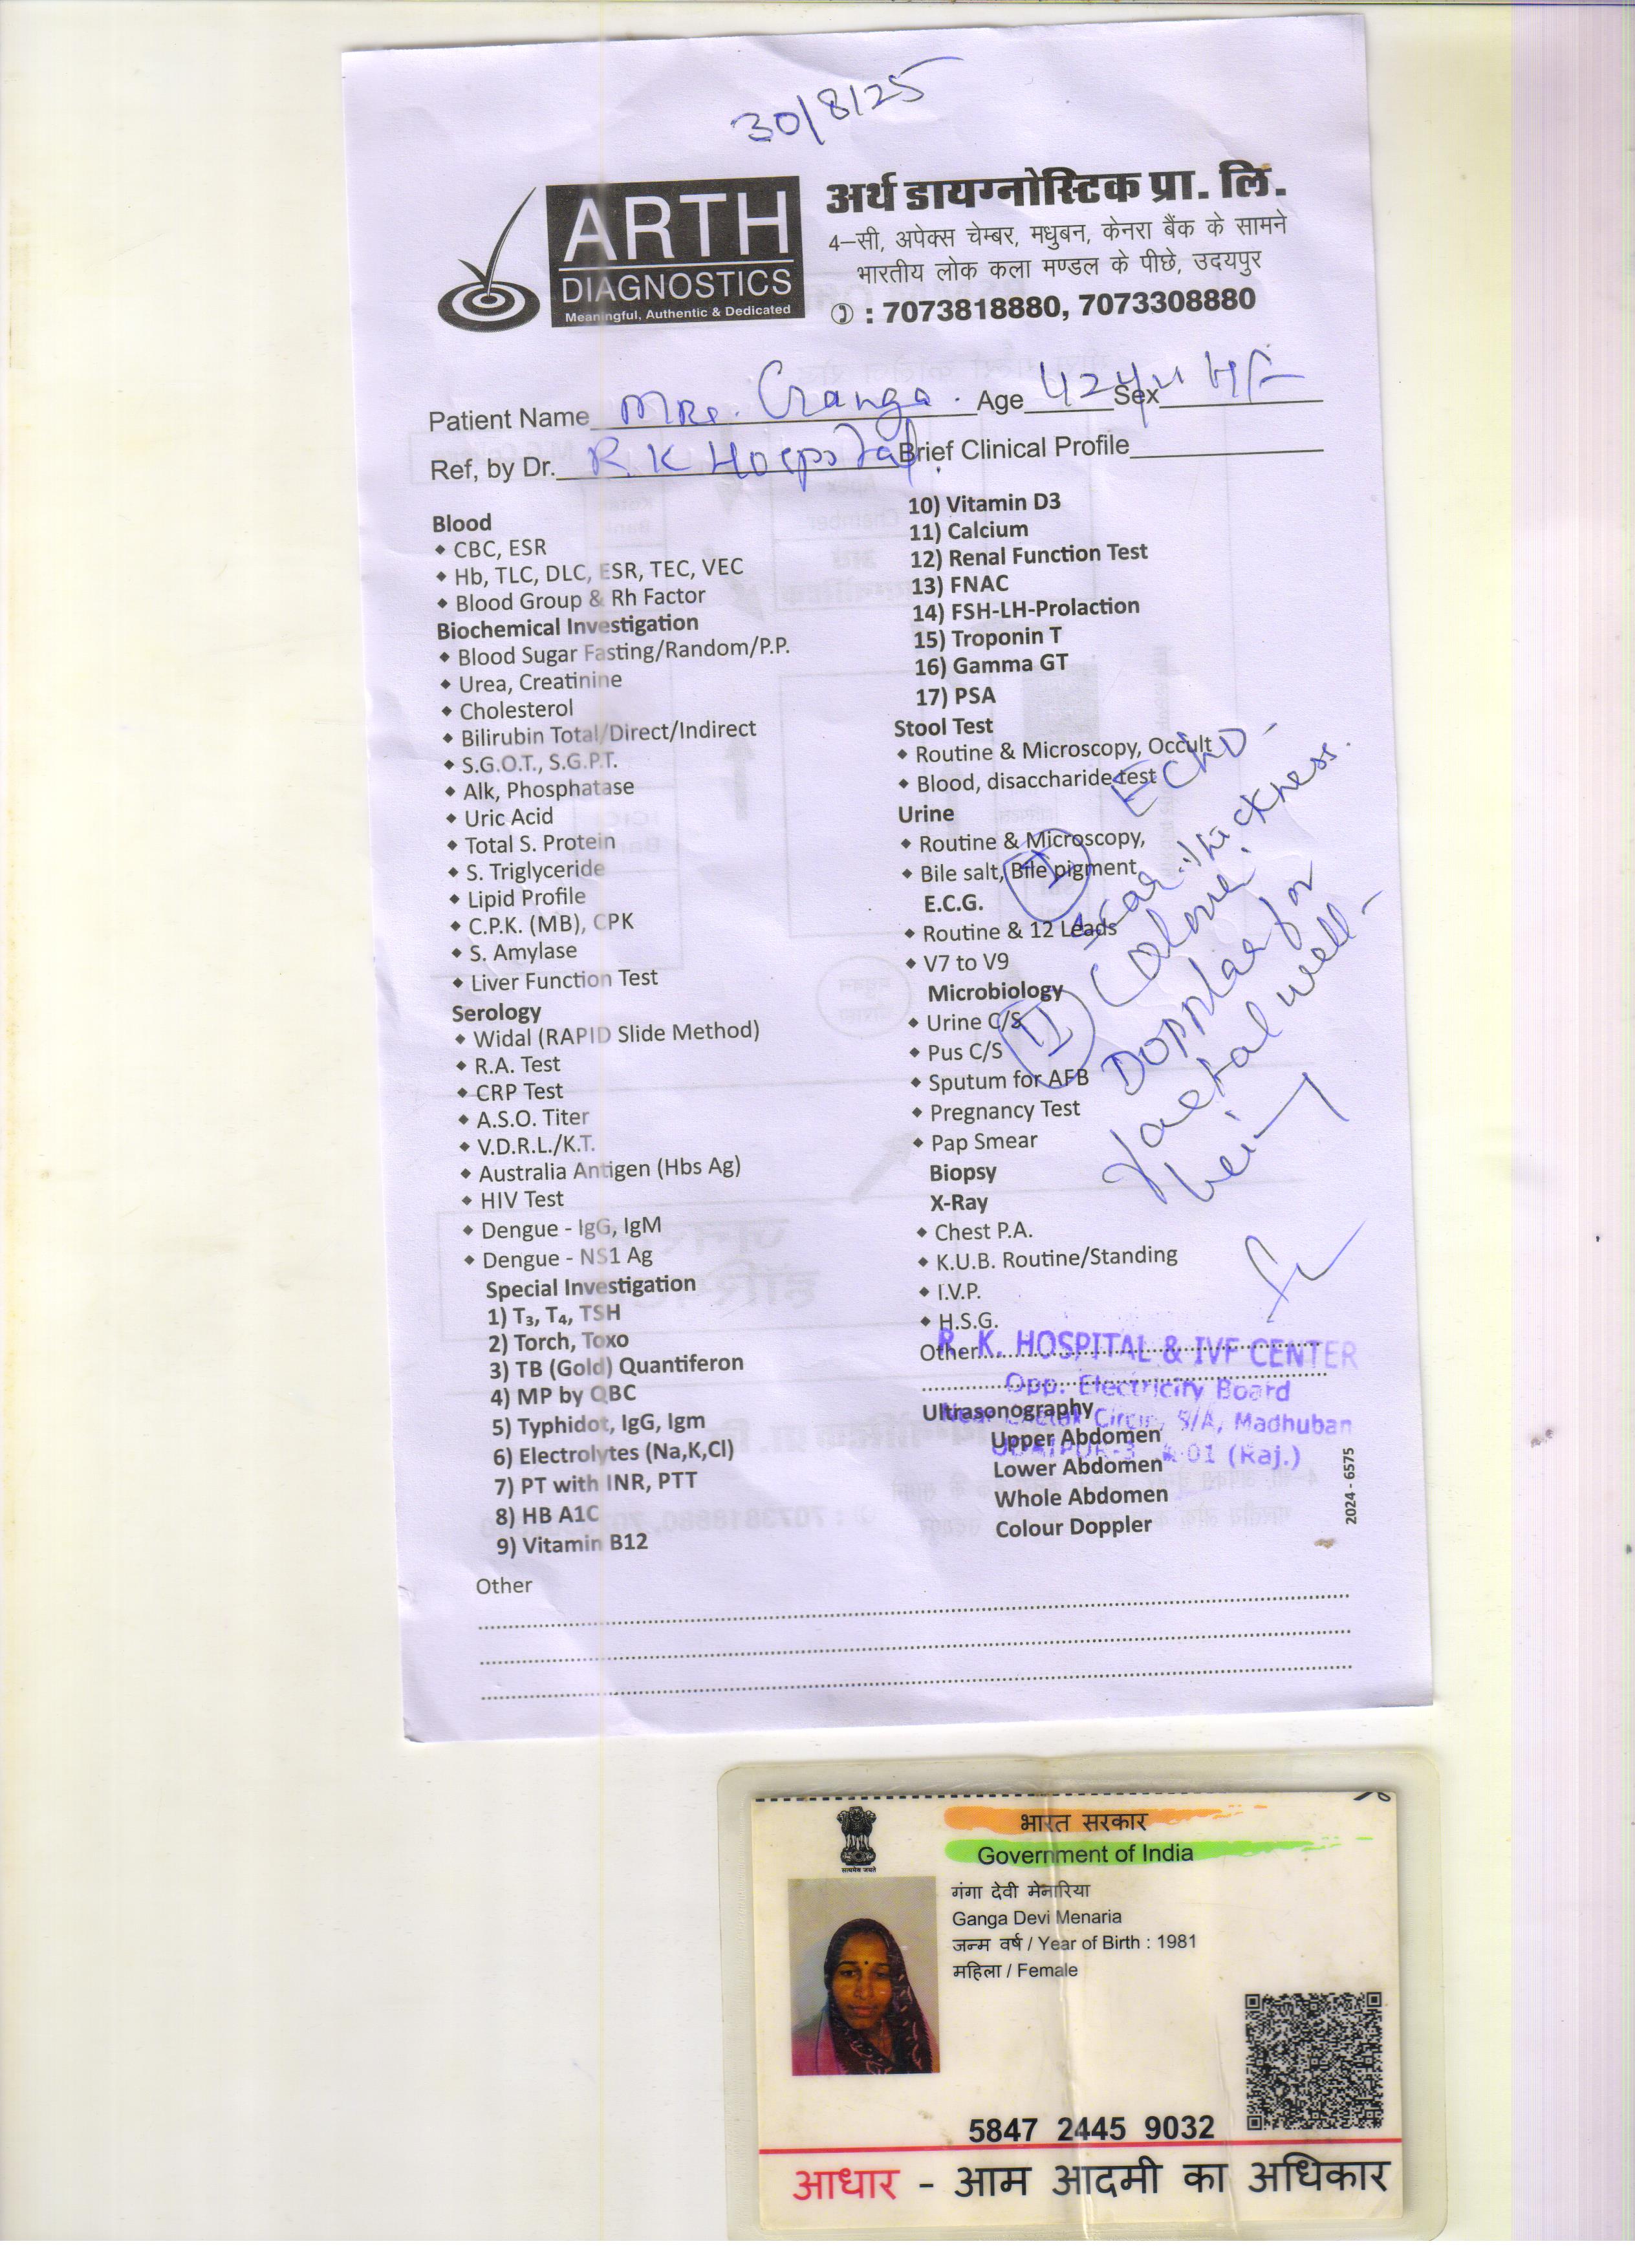 30/8/25
ARTH
DIAGNOSTICS
Meaningful, Authentic & Dedicated
अर्थ डायग्नोस्टिक प्रा. लि.
4–सी, अपेक्स चेम्बर, मधुबन, केनरा बैंक के सामने
भारतीय लोक कला मण्डल के पीछे, उदयपुर
: 7073818880, 7073308880
Patient Name Mrs. Ganga. Age 42 Sex F
Ref, by Dr. R.K Hospital. Brief Clinical Profile
Blood
CBC, ESR
Hb, TLC, DLC, ESR, TEC, VEC
Blood Group & Rh Factor
Biochemical Investigation
Blood Sugar Fasting/Random/P.P.
Urea, Creatinine
Cholesterol
Bilirubin Total/Direct/Indirect
S.G.O.T., S.G.P.T.
Alk, Phosphatase
Uric Acid
Total S. Protein
S. Triglyceride
Lipid Profile
C.P.K. (MB), CPK
S. Amylase
Liver Function Test
Serology
Widal (RAPID Slide Method)
R.A. Test
CRP Test
A.S.O. Titer
V.D.R.L./K.T.
Australia Antigen (Hbs Ag)
HIV Test
Dengue - IgG, IgM
Dengue - NS1 Ag
Special Investigation
1) T₃, T₄, TSH
2) Torch, Toxo
3) TB (Gold) Quantiferon
4) MP by QBC
5) Typhidot, IgG, Igm
6) Electrolytes (Na,K,Cl)
7) PT with INR, PTT
8) HB A1C
9) Vitamin B12
10) Vitamin D3
11) Calcium
12) Renal Function Test
13) FNAC
14) FSH-LH-Prolaction
15) Troponin T
16) Gamma GT
17) PSA
Stool Test
Routine & Microscopy, Occult
Blood, disaccharide test
Urine
Routine & Microscopy,
Bile salt, Bile pigment
E.C.G.
Routine & 12 Leads
V7 to V9
Microbiology
Urine C/S
Pus C/S
Sputum for AFB
Pregnancy Test
Pap Smear
Biopsy
X-Ray
Chest P.A.
K.U.B. Routine/Standing
I.V.P.
H.S.G.
Other
Ultrasonography
Upper Abdomen
Lower Abdomen
Whole Abdomen
Colour Doppler
(I) ECHO -
scar thickness.
(II) Colour
Dopplar for
faetal well -
being
R. K. HOSPITAL & IVF CENTER
Opp. Electricity Board
Circle, 5/A, Madhuban
(Raj.)
2024 - 6575
Other
भारत सरकार
Government of India
गंगा देवी मेनारिया
Ganga Devi Menaria
जन्म वर्ष / Year of Birth : 1981
महिला / Female
5847 2445 9032
आधार - आम आदमी का अधिकार